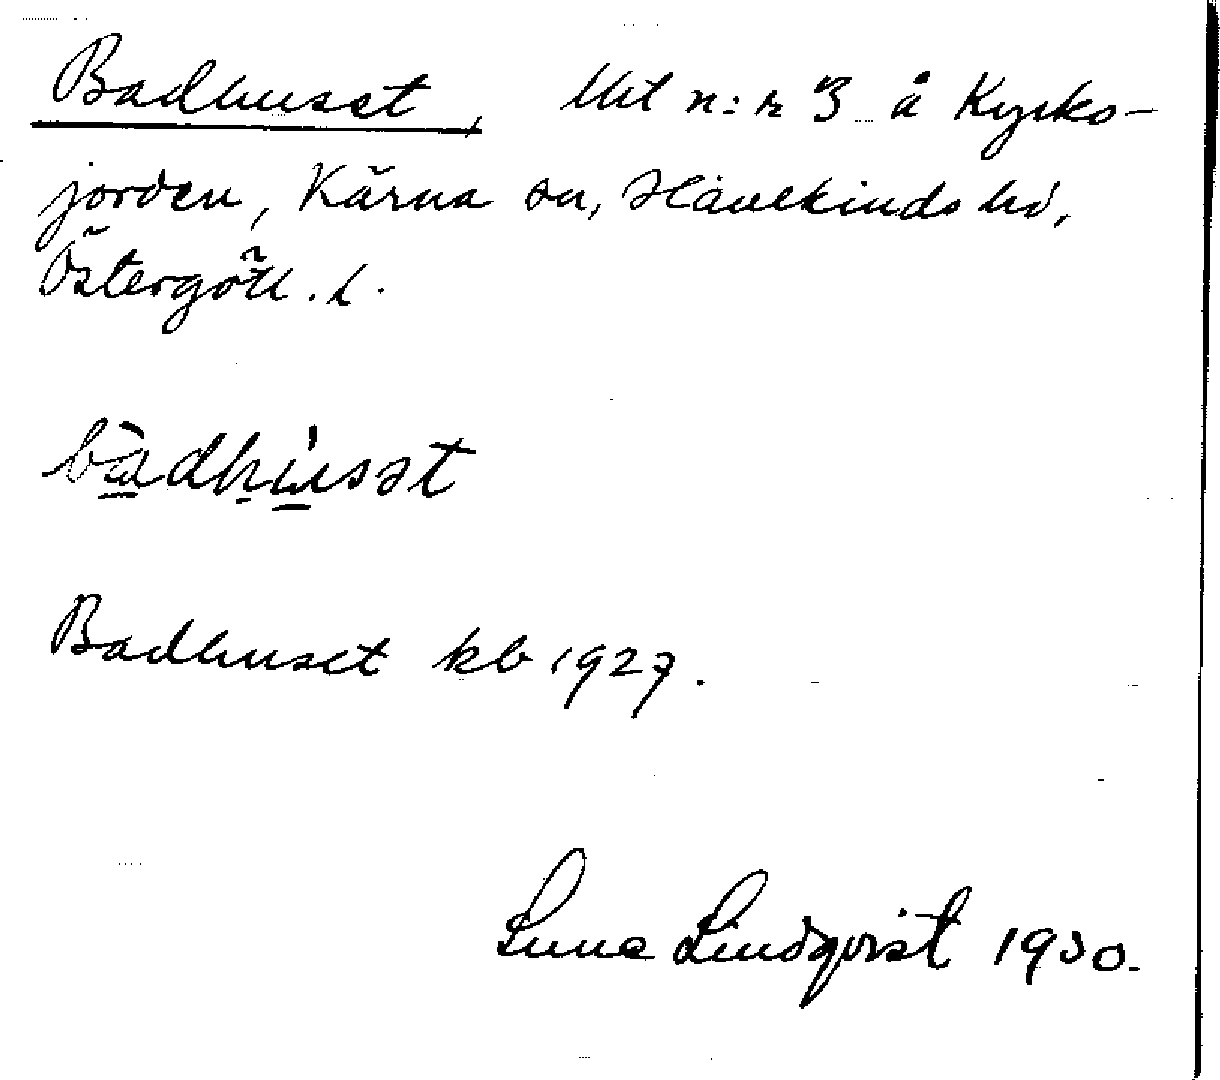 Badhuset, Utl n:r 3 å Kyrko-
jorden, Kärna sn, Hanekinds hd,
Östergötl. l.
bàdhùsət
Badhuset kb 1927.
Sune Lindqvist 1930.